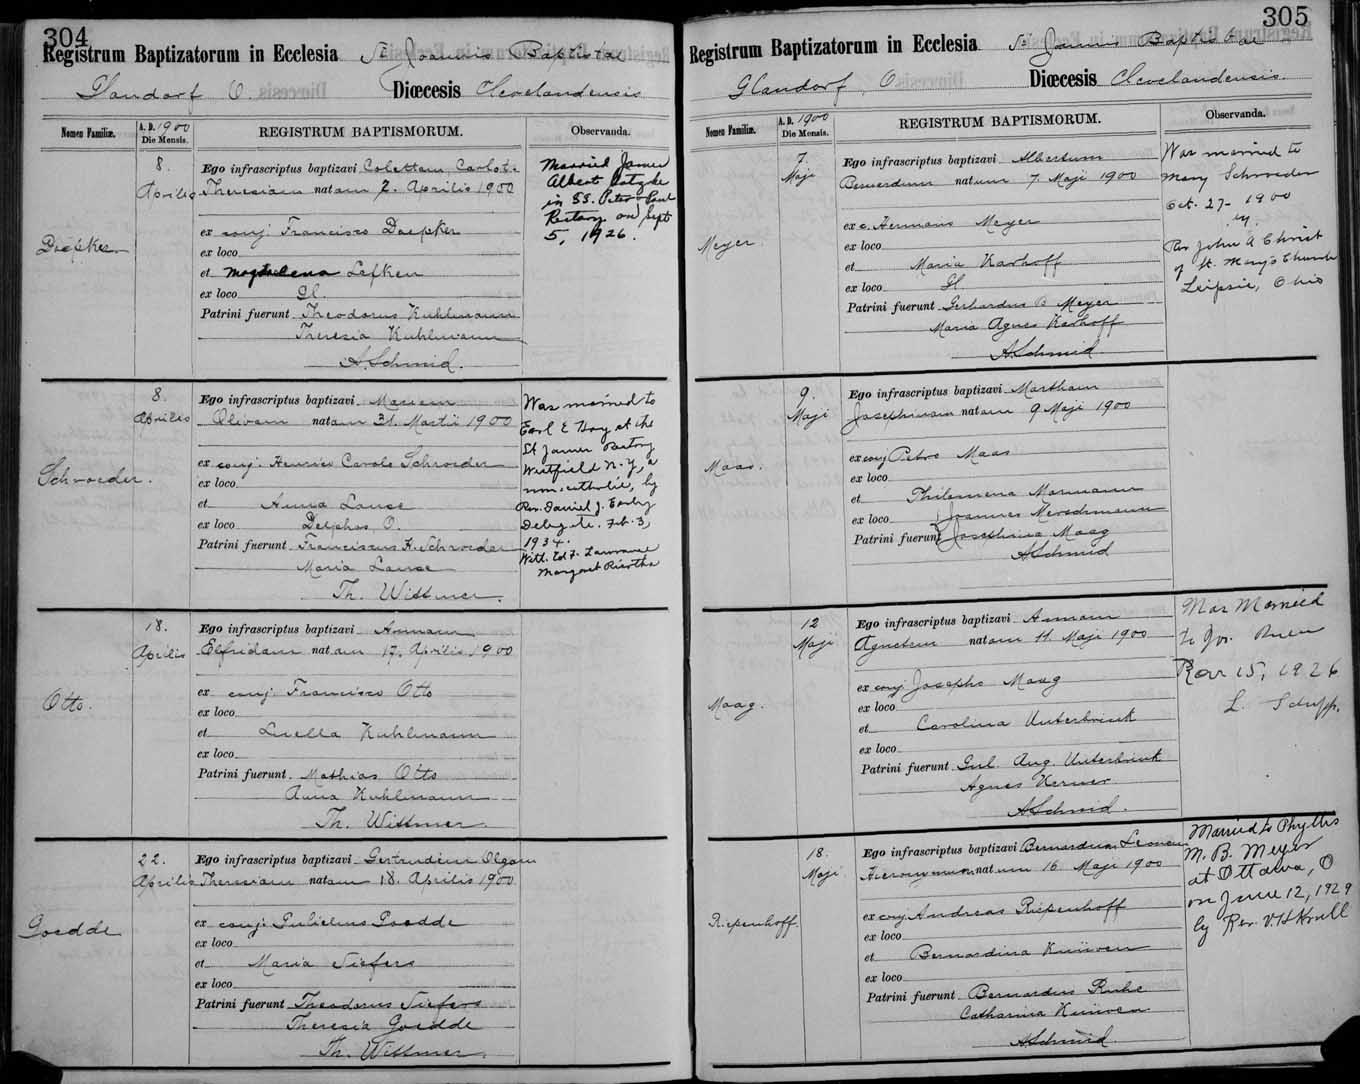 304
Registrum Baptizatorum in Ecclesia St Joannis Baptistae
Glandorf O. Diœcesis Clevelandensis
Nomen Familiæ. A. D. 1900 Die Mensis. REGISTRUM BAPTISMORUM. Observanda.
Daepker
8. Aprilis
Ego infrascriptus baptizavi Colettam Carlot.
Theresiam natam 7. Aprilis 1900
ex conj. Francisco Daepker
ex loco
et Magdalena Lefken
ex loco Gl.
Patrini fuerunt Theodorus Kuhlmann
Theresia Kuhlmann
A. Schmid.
Married James
Albert
in SS. Peter + Paul
Rectory on Sept
5, 1926.
Schroeder.
8. Aprilis
Ego infrascriptus baptizavi Mariam
Olivam natam 31. Martii 1900
ex conj. Henrico Carolo Schroeder
ex loco
et Anna Lause
ex loco Delphos, O.
Patrini fuerunt Franciscus H. Schroeder
Maria Lause
Th. Wittmer.
Was married to
Earl E Hoy at the
St James Rectory
Westfield N.Y., a
non-catholic, by
Rev. Daniel J.
Delegate. Feb. 3,
1934.
Witt. Ed. F. Lawrance
Margaret
Otto.
18. Aprilis
Ego infrascriptus baptizavi Annam
Elfridam natam 17. Aprilis 1900
ex conj. Francisco Otto
ex loco
et Luella Kuhlmann
ex loco
Patrini fuerunt Mathias Otto
Anna Kuhlmann
Th. Wittmer.
Goedde
22. Aprilis
Ego infrascriptus baptizavi Gertrudem Olgam
Theresiam natam 18. Aprilis 1900
ex conj. Gulielmo Goedde
ex loco
et Maria Siefers
ex loco
Patrini fuerunt Theodorus Siefers
Theresia Goedde
Th. Wittmer.
305
Registrum Baptizatorum in Ecclesia St Joannis Baptistae
Glandorf, O. Diœcesis Clevelandensis.
Nomen Familiæ. A. D. 1900 Die Mensis. REGISTRUM BAPTISMORUM. Observanda.
Meyer.
7. Maji
Ego infrascriptus baptizavi Albertum
Bernardum natum 7 Maji 1900
ex c. Hermano Meyer
ex loco
et Maria Karhoff
ex loco Gl.
Patrini fuerunt Gerhardus B Meyer
Maria Agnes Karhoff
A. Schmid
Was married to
Mary Schroeder
Oct. 27 - 1900
by
Rev John A Christ
of St. Mary's Church
Leipsic, Ohio
Maag.
9. Maji
Ego infrascriptus baptizavi Martham
Josephinam natam 9 Maji 1900
ex conj Petro Maag
ex loco
et Philomena Mormann
ex loco Joannes Merschmann
Patrini fuerunt Josephina Maag
A Schmid
Maag.
12 Maji
Ego infrascriptus baptizavi Annam
Agnetem natam 11. Maji 1900
ex conj Josepho Maag
ex loco
et Carolina Unterbrink
ex loco
Patrini fuerunt Gul. Aug. Unterbrink
Agnes Kerner
A Schmid.
Was Married
to Jos.
Nov 15, 1926
L. Schupp.
Riepenhoff
18. Maji
Ego infrascriptus baptizavi Bernardum Leonem
Hieronymum natum 16. Maji 1900
ex conj Andreas Riepenhoff
ex loco
et Bernardina Kuiiven
ex loco
Patrini fuerunt Bernardus Ruhe
Catharina Kuiiven
A. Schmid.
Married to Phyllis
M. B. Meyer
at Ottawa, O
on June 12, 1929
by Rev. V. H Krull